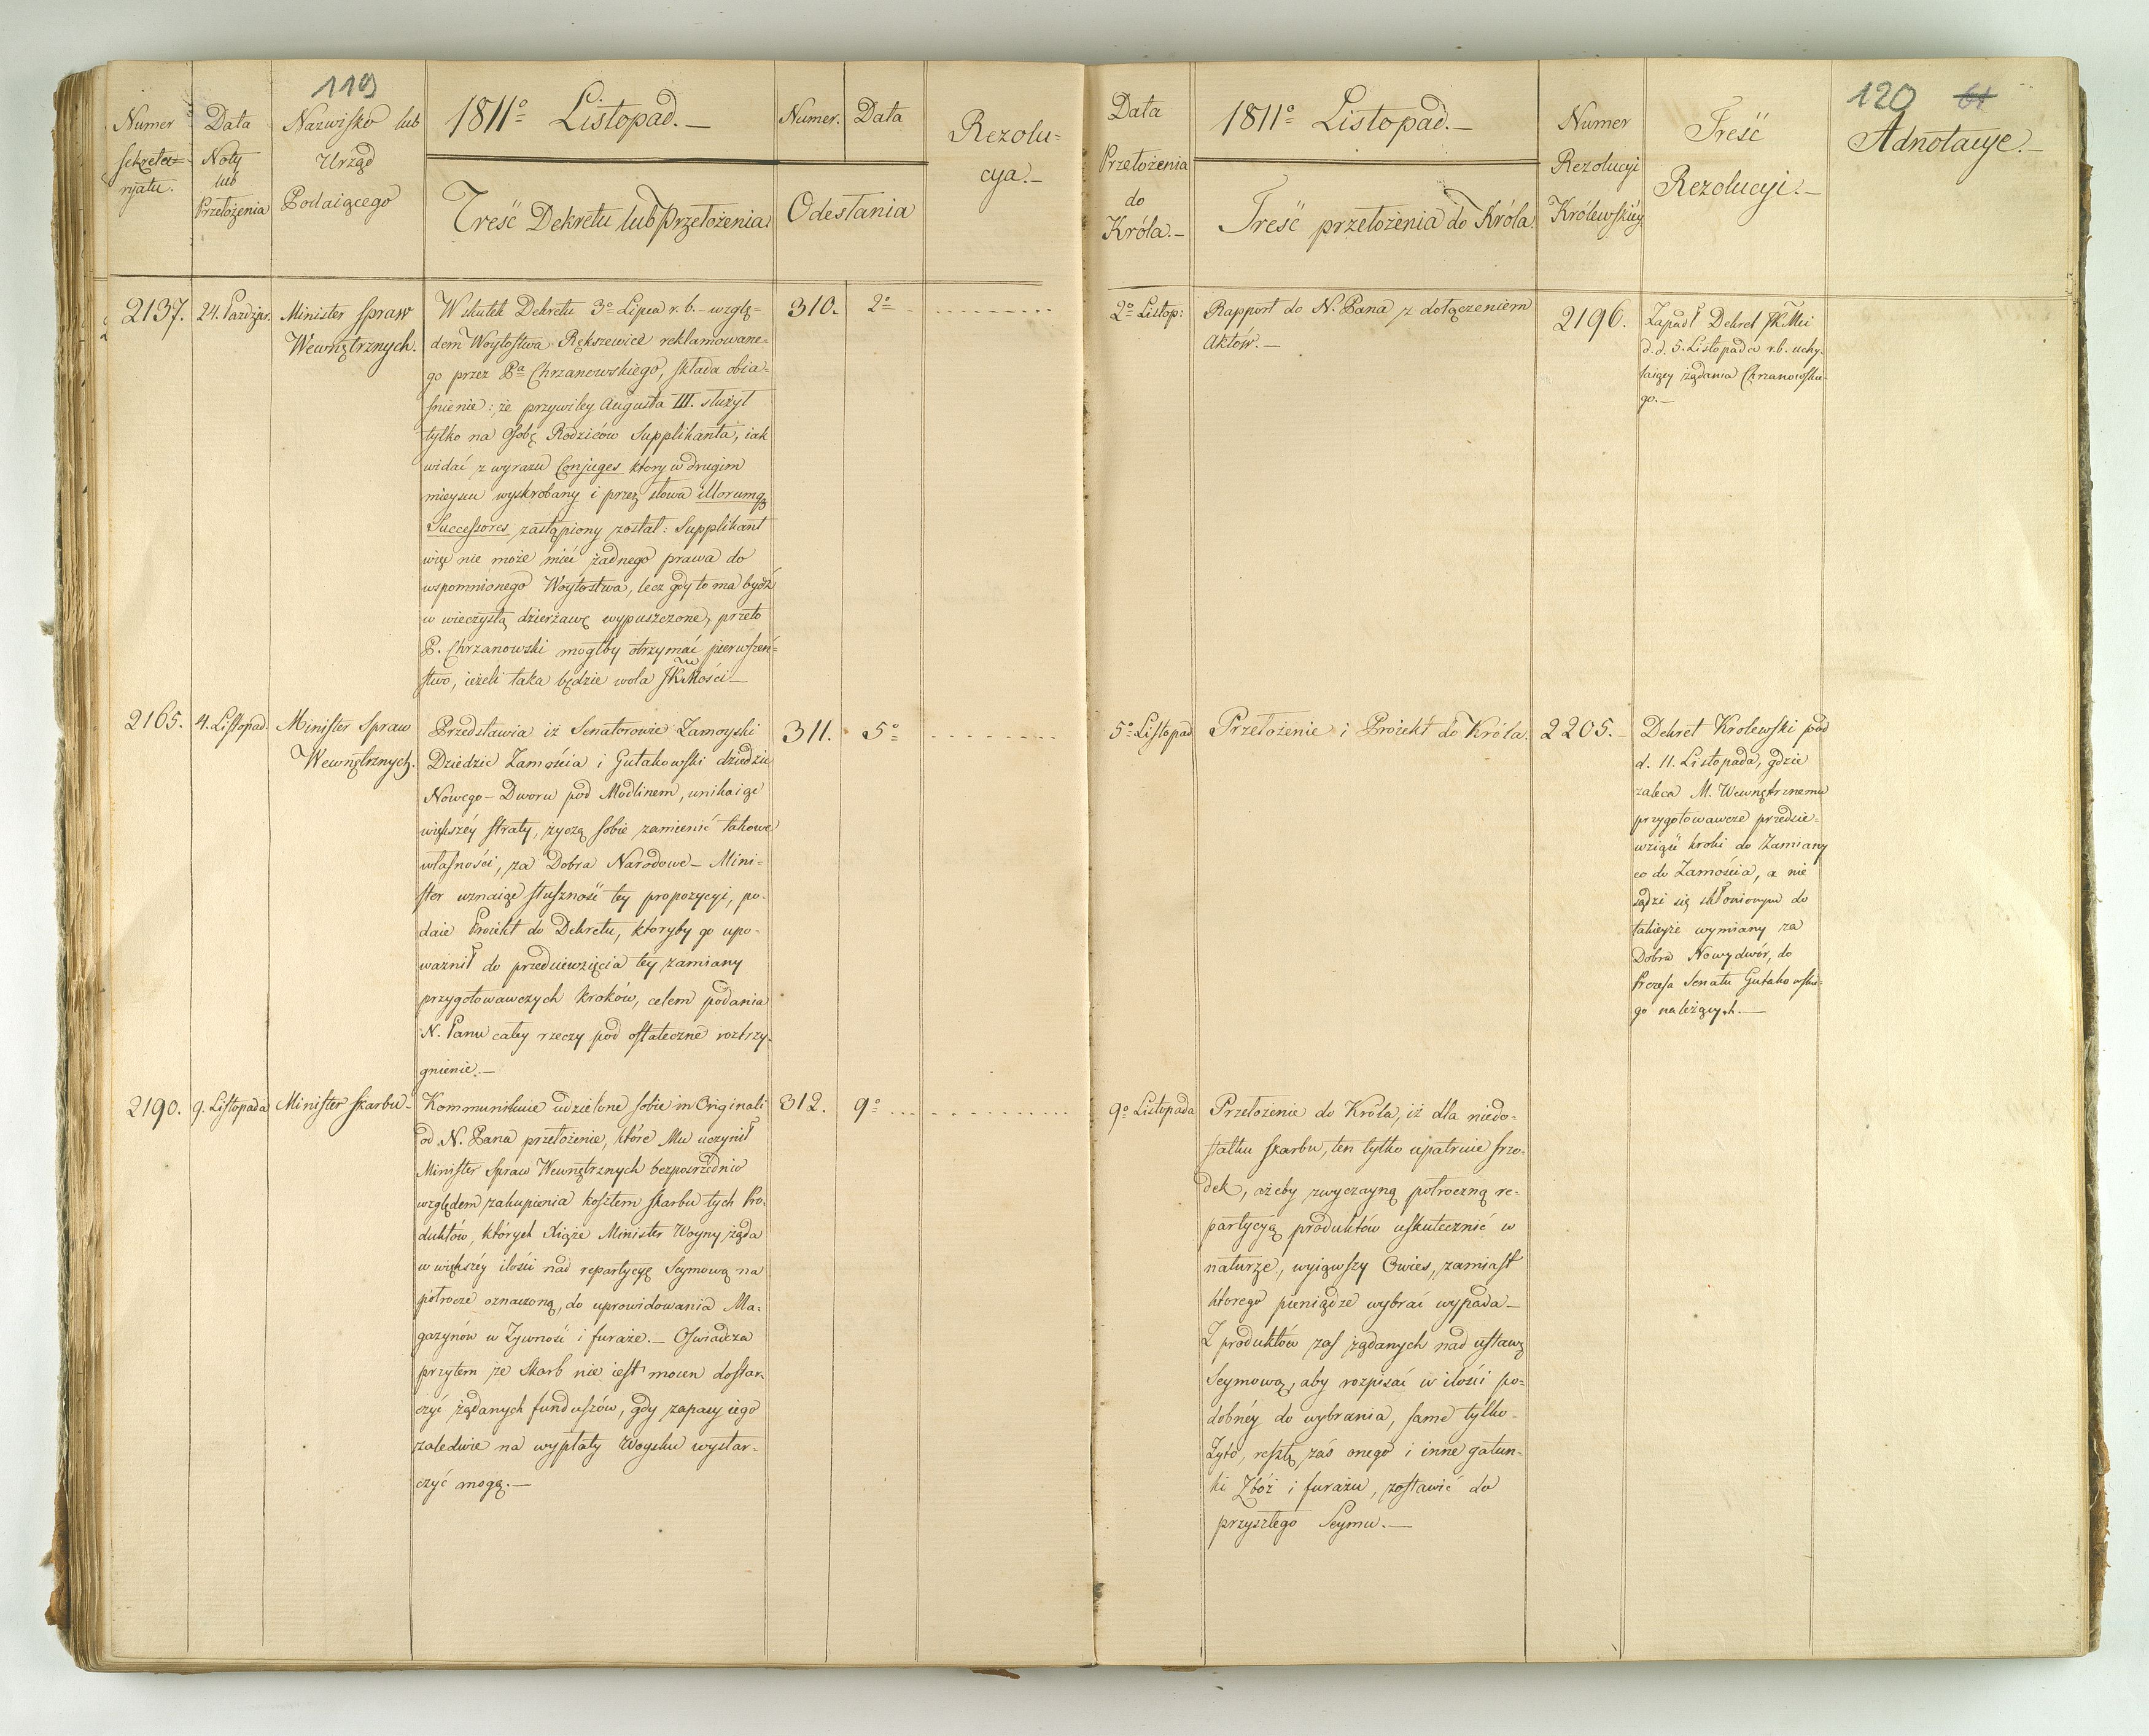 119
Numer
sekreta=
ryatu.
Data
Noty
lub
Przełożenia
Nazwisko lub
Urząd
Podaiącego
1811º Listopad.—
Treść Dekretu lub Przełożenia
Numer. Data
Odesłania
Rezolu=
cya.—
2137. 24. Paździer. Minister Spraw
Wewnętrznych.
W skutek Dekretu 3º Lipca r. b. wzglę=
dem Woytostwa Rększewice reklamowane=
go przez Pª Chrzanowskiego, składa obia=
śnienie: że przywiley Augusta III. służył
tylko na Osobę Rodziców Supplikanta, iak
widać z wyrazu Conjuges ktory w drugim
mieyscu wyskrobany i przez słowa illorumq
Successores zastąpiony został: Supplikant
więc nie może mieć żadnego prawa do
wspomnionego Woytostwa, lecz gdy to ma bydź
w wieczystą dzierżawę wypuszczone, przeto
P. Chrzanowski mogłby otrzymać pierwszeń=
stwo, ieżeli taka będzie wola JKMości—
310. 2º
2165. 4. Listopad. Minister Spraw
Wewnętrznych.
Przedstawia iż Senatorowie Zamoyski
Dziedzic Zamościa i Gutakowski dziedzic
Nowego-Dworu pod Modlinem, unikaiąc
większéy straty, życzą sobie zamienić takowe
własności, za Dobra Narodowe— Mini=
ster uznaiąc słuszność tey propozycyi, po=
daie Proiekt do Dekretu, ktoryby go upo=
ważnił do przedsiewzięcia tey zamiany
przygotowawczych kroków, celem podania
N. Panu całey rzeczy pod ostateczne roztrzy=
gnienie.—
311. 5º
2190. 9. Listopada Minister Skarbu
Kommunikuie udzielone sobie in Originali
od N. Pana przełożenie, które Mu uczynił
Minister Spraw Wewnętrznych bezpośrzednio
względem zakupienia kosztem skarbu tych Pro=
duktów, których Xiąże Minister Woyny żąda
w większéy ilości nad repartycyę Seymową na
półrocze oznaczoną, do uprowidowania Ma=
gazynów w Zywność i furaże.— Oświadcza
przytem że Skarb nie iest mocen dostar=
czyć żądanych funduszów, gdy zapasy iego
zaledwie na wypłaty Woysku wystar=
czyć mogą.—
312. 9º
120 61
Data
Przełożenia
do
Króla.—
1811º Listopad.—
Treść przełożenia do Króla
Numer
Rezolucyi
Królewskiéy
Treść
Rezolucyi.—
Adnotacye.—
2º Listop: Rapport do N. Pana z dołączeniem
Aktów.—
2196. Zapadł Dekret JKMci
d. d. 5. Listopada r. b. uchy=
laiący żądania Chrzanowskie=
go.—
5º Listopad Przełożenie i Proiekt do Króla. 2205.—
Dekret Krolewski pod
d. 11. Listopada, gdzie
zaleca M. Wewnętrznemu
przygotowawcze przedsie=
wziąść kroki do Zamiany
co do Zamościa, a nie
sądzi się skłonionym do
takieyże wymiany za
Dobra Nowydwór, do
Prezesa Senatu Gutakowskie=
go należących.—
9º Listopada Przełożenie do Króla, iż dla niedo=
statku skarbu, ten tylko upatruie śrzo=
dek, ażeby zwyczayną połroczną re=
partycyą produktów uskutecznić w
naturze, wyiąwszy Owies, zamiast
ktorego pieniądze wybrać wypada—
Z produktów zaś żądanych nad ustawę
Seymową, aby rozpisać w ilości po=
dobnéy do wybrania, samo tylko
Żyto, resztę zaś onego i inne gatun=
ki Zbóż i furażu, zostawić do
przyszłego Seymu.—